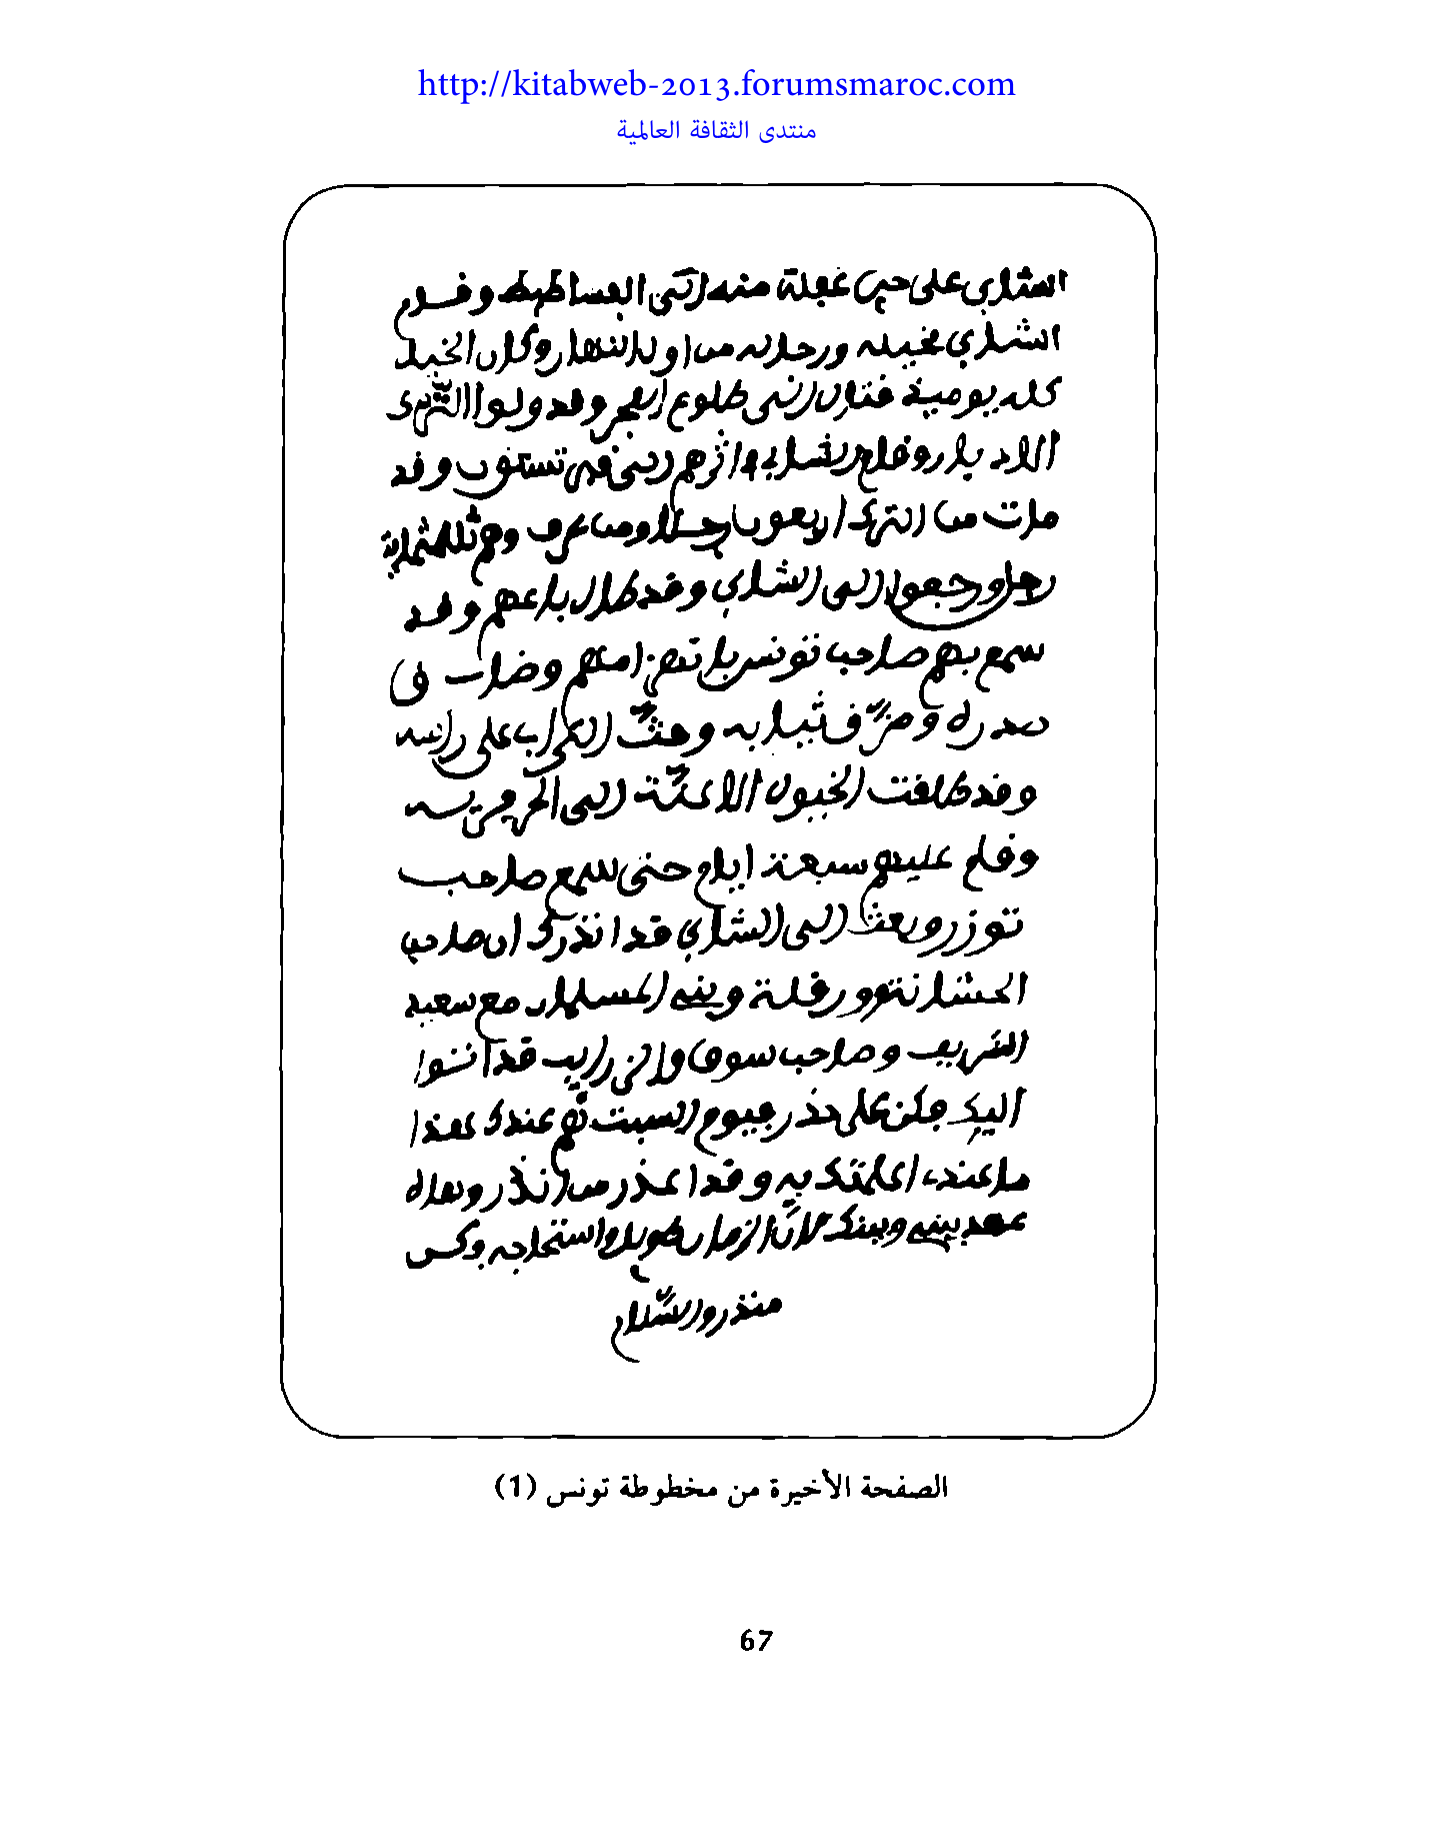 http://kitabweb-2013.forumsmaroc.com
منتدى الثقافة العالمية
الشابي على حين غفلة منه إلى الفساطيط وقام
الشابي بخيله ورجاله من أول النهار وكان الخيل
كله يومية فتال إلى طلوع الفجر وقد ولوا الترك
الادبار وقام الشابي واثرهم إلى فم تستور وقد
مات من الترك اربعون رجلا ومن عرف وهم ثلاثماية
رجل ورجعوا إلى الشابي وقد طال باعهم وقد
سمع بهم صاحب تونس بانهزامهم وضاق في
صدره ومزّق ثيابه وحثّ التراب على راسه
وقد طلقت الخيول الاعنّة إلى
وقام عليهم سبعة ايام حتى سمع صاحب
توزر وبعث إلى الشابي قد انذرك ان صاحب
الحشانتوورقلة وبني المسلمان مع سعيد
الشريف وصاحب سوف والزراب قد اتوا
اليك فكن على حذر فيوم السبت ثم عندك هذا
ما عندي اعلمتك به وقد اعذر من انذر وهاذه
عهد بيني وبينك لان الزمان طويل واستحاجه وكن
منذر والسّلام
الصفحة الأخيرة من مخطوطة تونس (1)
67